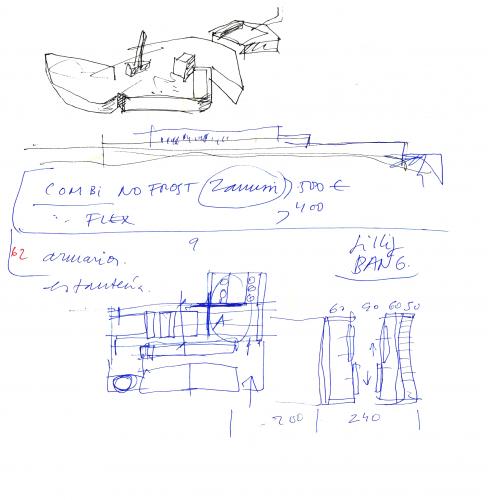 COMBI NO FROST Zanussi 500 €
FLEX > 400
62 armarios.
9
estantería.
Cillit
BANG.
A
60 90 60 50
200 240